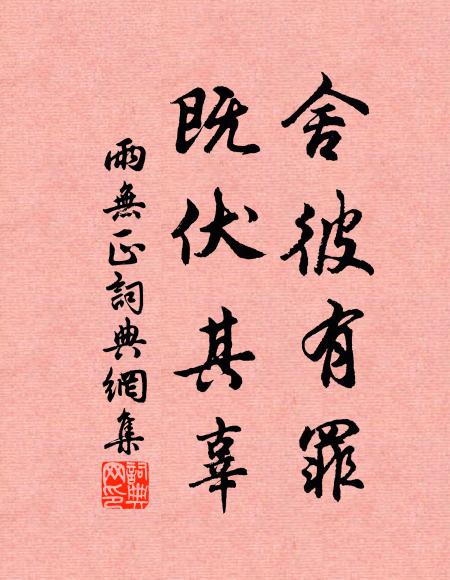 舍彼有罪
既伏其辜
雨無正詞典網集
詞典网印